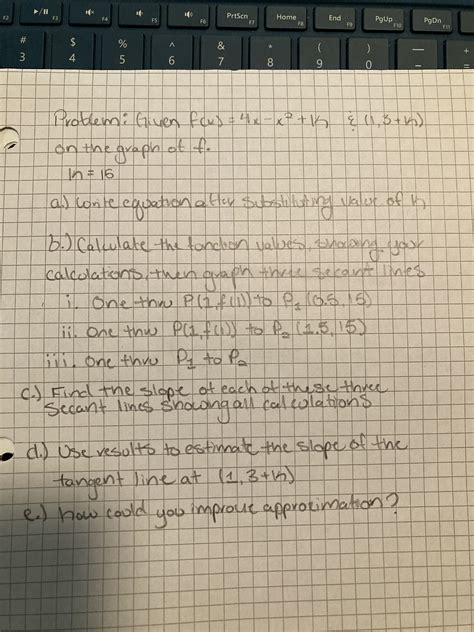 F2 ▶/II F3 F4 F5 F6 PrtScn F7 Home F8 End F9 PgUp F10 PgDn F11
# $ % ^ & * ( ) — +
3 4 5 6 7 8 9 0 - =
Problem: Given f(x) = 4x - x² + k & (1, 3+k)
on the graph of f.
k = 16
a.) Write equation after substituting value of k
b.) Calculate the function values, showing your
calculations, then graph three secant lines
i. One thru P(1, f(1)) to P₁ (0.5, 15)
ii. One thru P(1, f(1)) to P₂ (1.5, 15)
iii. One thru P₁ to P₂
c.) Find the slope of each of these three
secant lines showing all calculations
d.) Use results to estimate the slope of the
tangent line at (1, 3+k)
e.) how could you improve approximation?